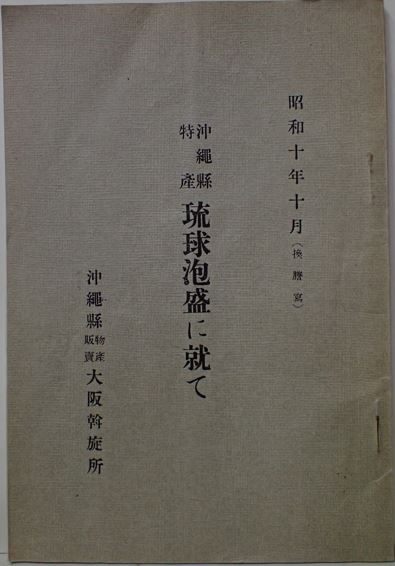 昭和十年十月(換謄寫)
沖繩縣特産 琉球泡盛に就て
沖繩縣物産販賣大阪斡旋所